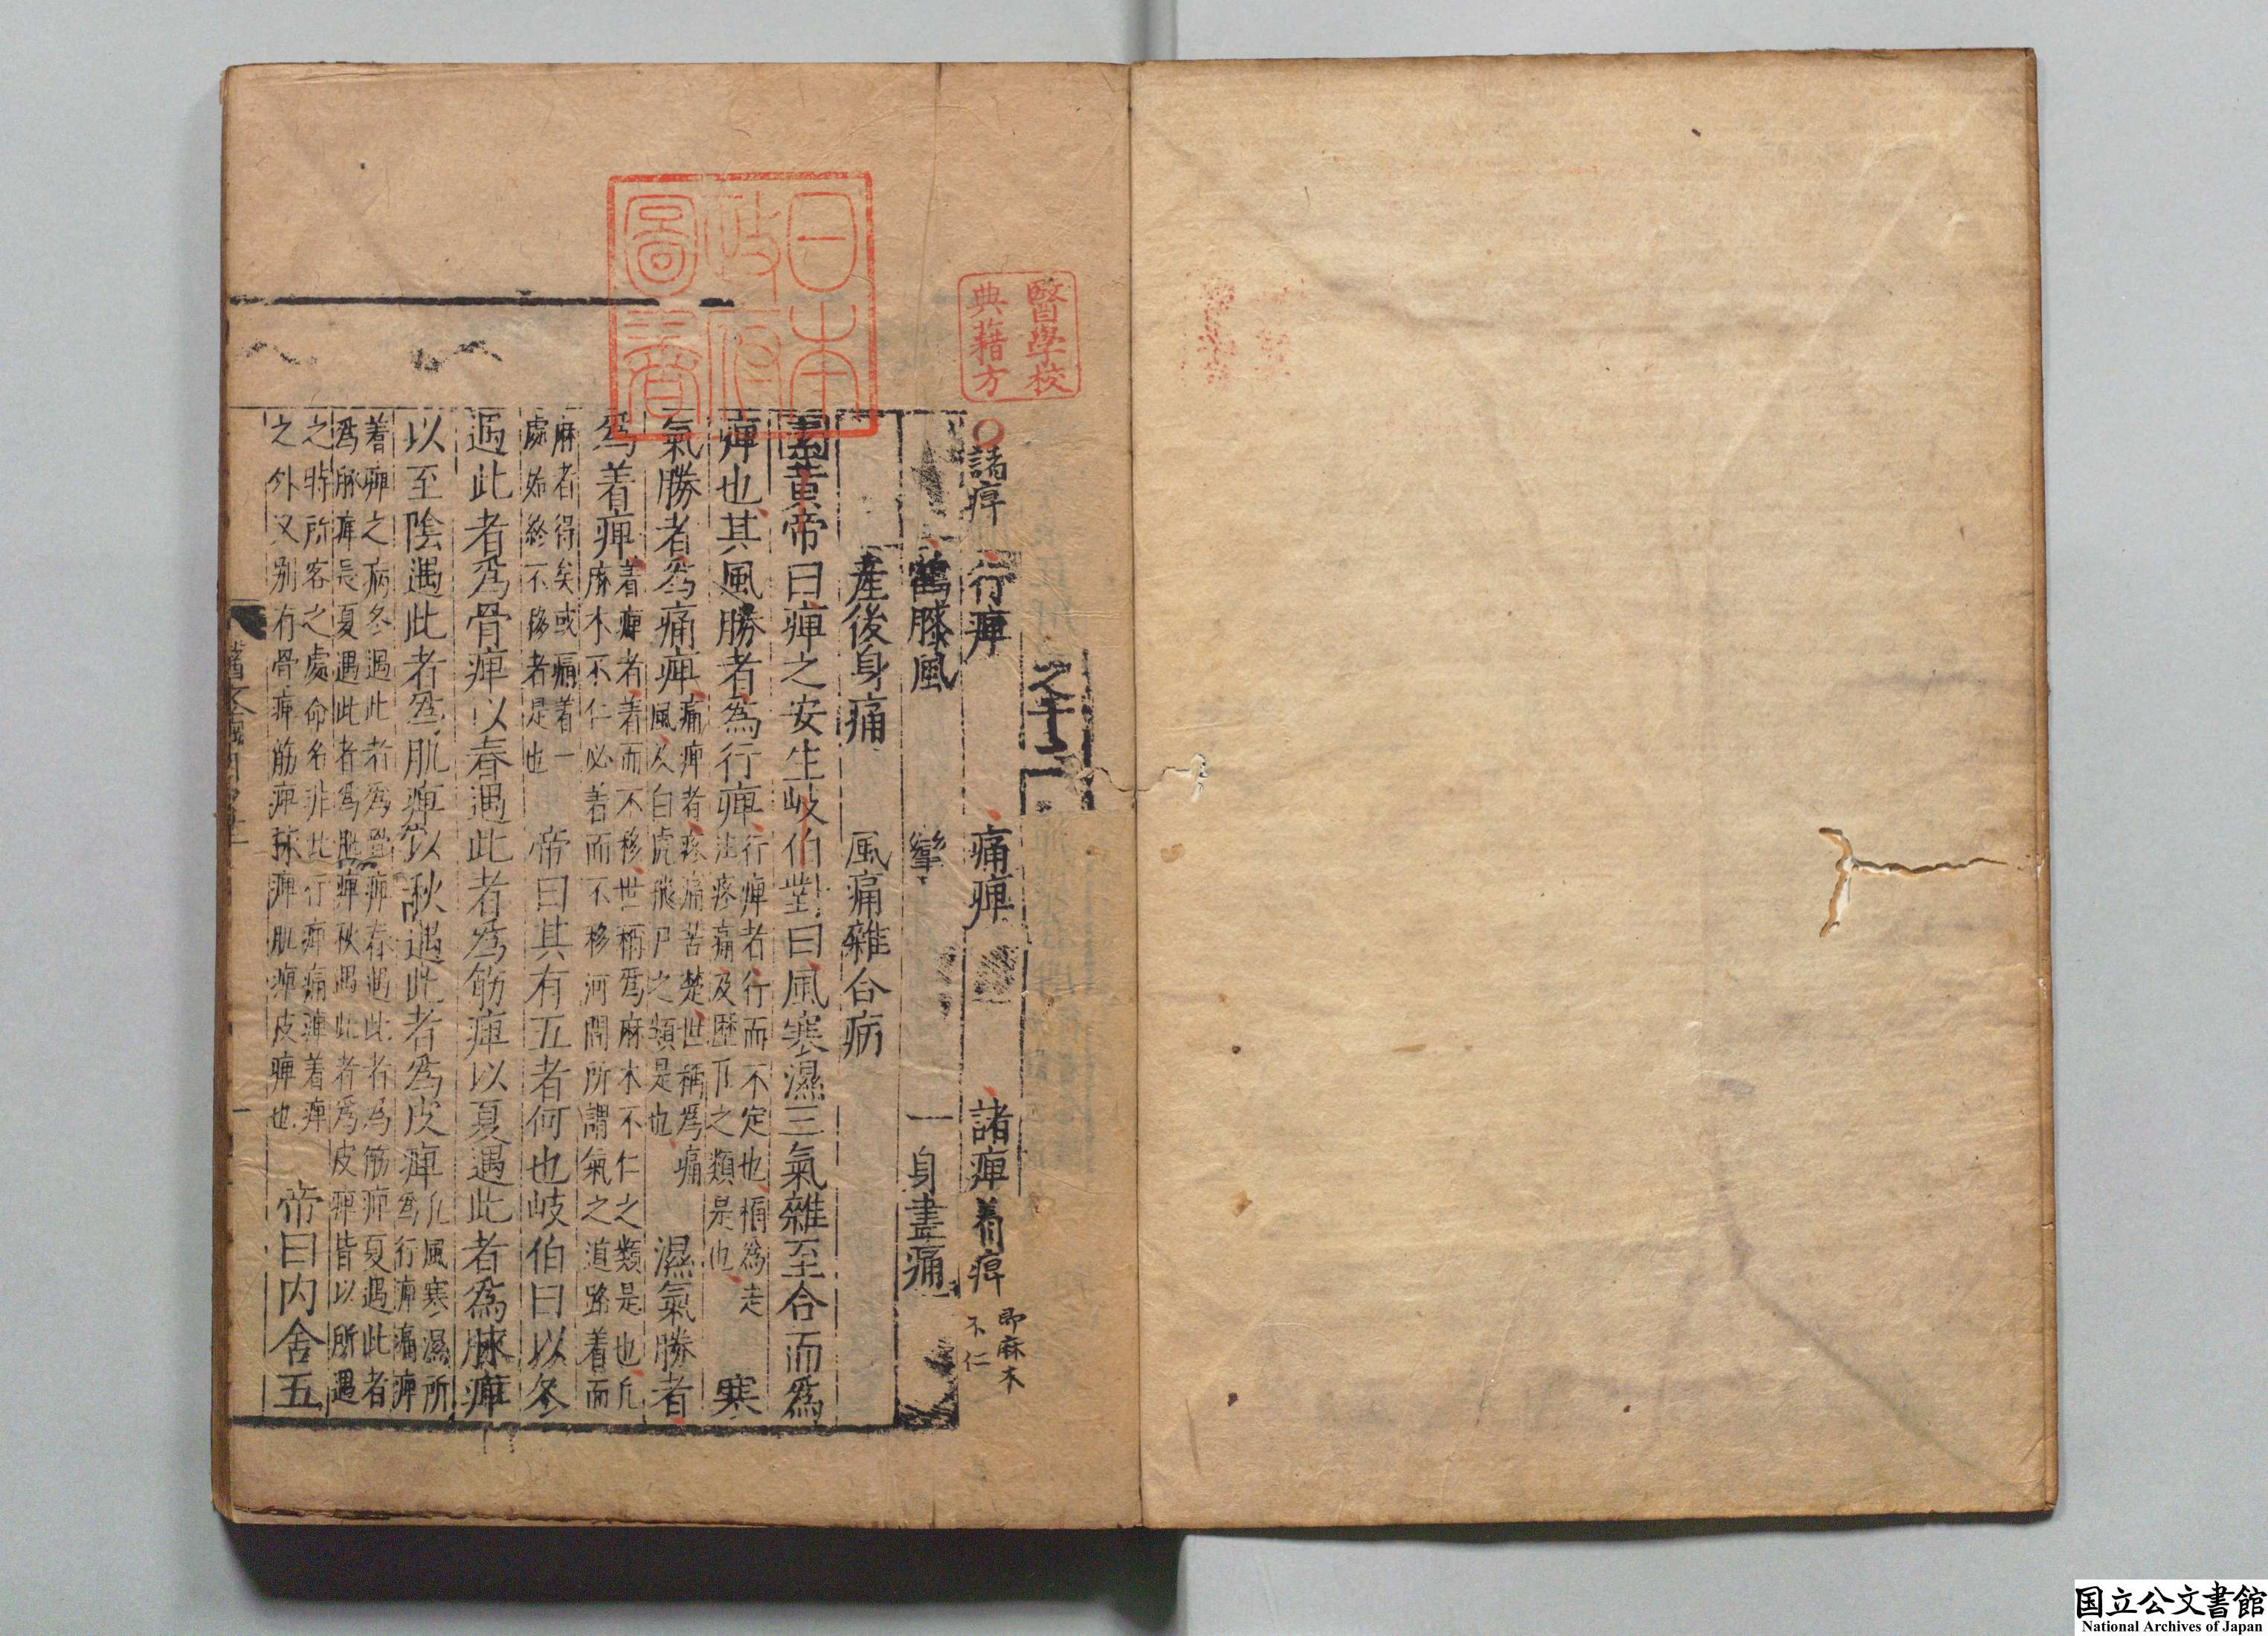 日本
政府
圖書
醫學校
典籍方
之十二
○諸痹 行痺 痛痺 諸痺 着痹 即麻木
不仁
鶴膝風 攣 一身盡痛
產後身痛 風痛雜合病
素黃帝曰痺之安生岐伯對曰風寒濕三氣雜至合而為
痺也其風勝者為行痺 行痺者行而不定也稱為走
注疼痛及歷節之類是也 寒
氣勝者為痛痺 痛痺者疼痛苦楚世稱為痛
風及白虎飛尸之類是也 濕氣勝者
為着痺 着痺者着而不移世稱為麻木不仁之類是也凡
麻木不仁必着而不移河間所謂氣之道路着而
麻者得矣或痛着一
處始終不移者是也 帝曰其有五者何也岐伯曰以冬
遇此者為骨痺以春遇此者為筋痺以夏遇此者為脉痺
以至陰遇此者為肌痺以秋遇此者為皮痺 凡風寒濕所
為行痺痛痺
着痺之病冬遇此者為骨痺春遇此者為筋痺夏遇此者
為脉痺長夏遇此者為肌痺秋遇此者為皮痺皆以所遇
之時所客之處命名非此行痺痛痺着痺
之外又別有骨痺筋痺脉痺肌痺皮痺也 帝曰內舍五
一
国立公文書館
National Archives of Japan